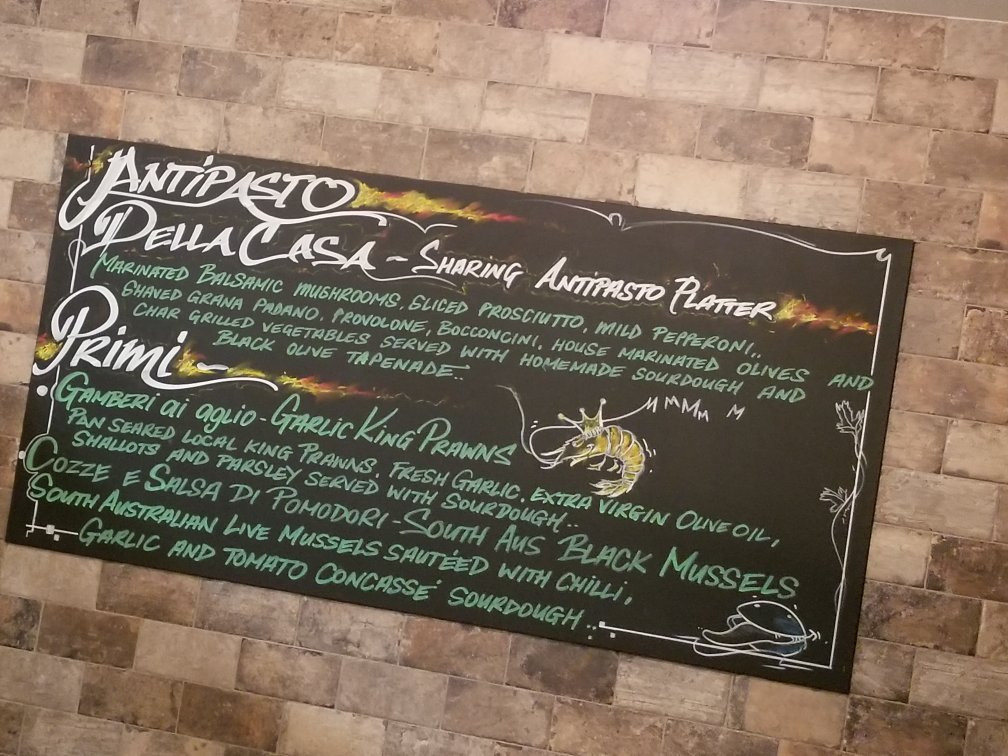 Antipasto
Della Casa - Sharing Antipasto Platter
Marinated Balsamic mushrooms, Sliced prosciutto, mild pepperoni,,
Shaved Grana Padano, Provolone, Bocconcini, House marinated olives and
char grilled vegetables served with homemade sourdough and
black olive tapenade..
Primi -
Gamberi ai aglio - Garlic King Prawns
Pan seared local king prawns, fresh garlic, extra virgin olive oil,
shallots and parsley served with sourdough..
Cozze e Salsa di Pomodori - South Aus Black Mussels
South Australian live mussels sautéed with chilli,
Garlic and tomato concassé sourdough..